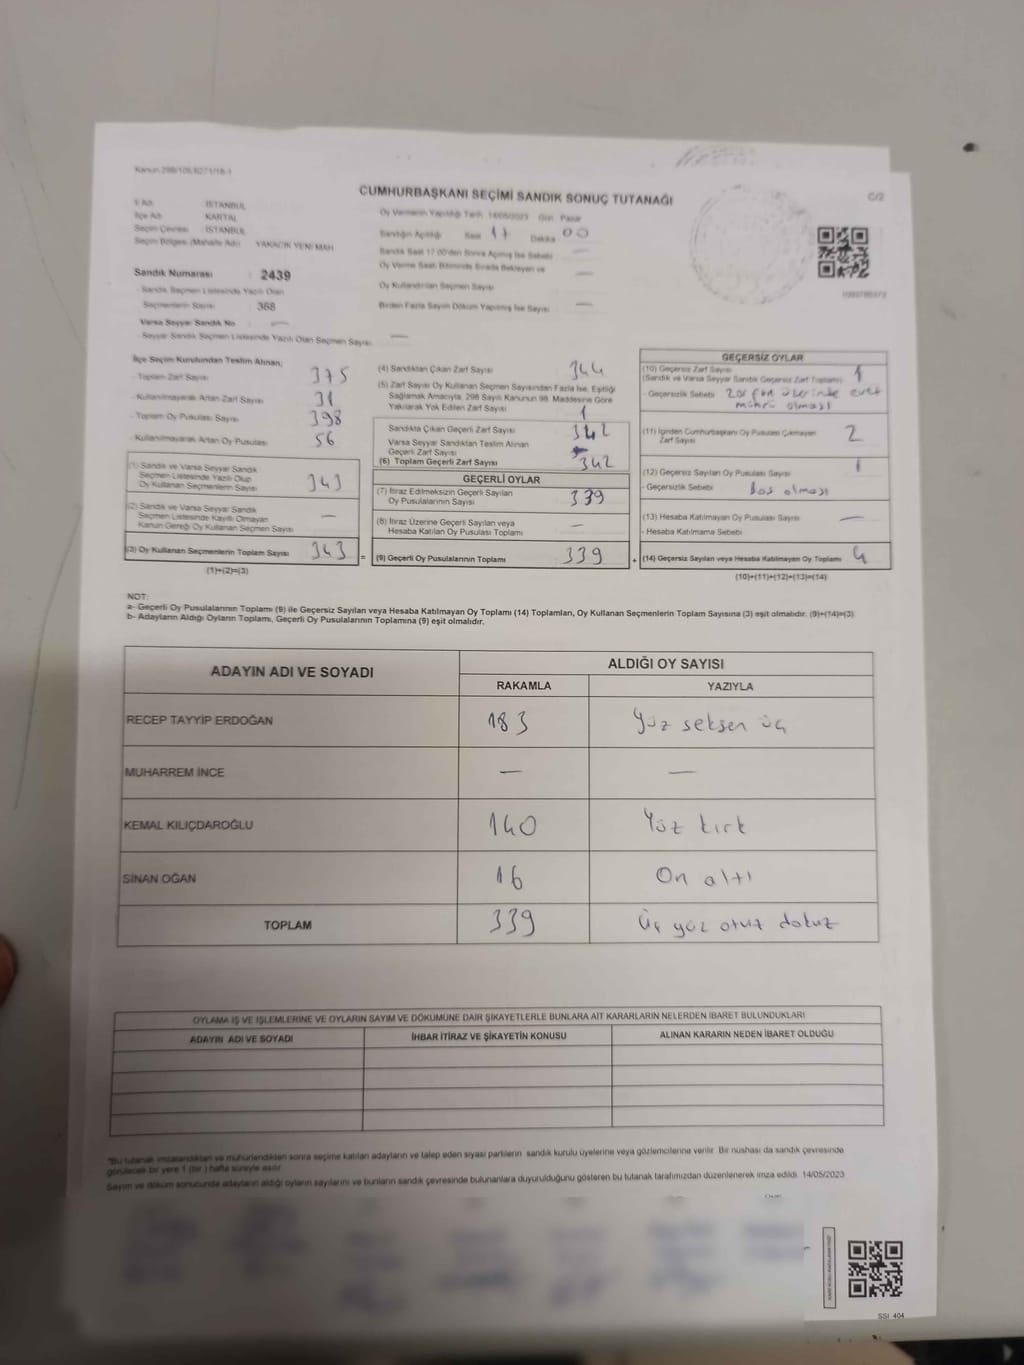 Kanun 298/105,6271/18-1
CUMHURBAŞKANI SEÇİMİ SANDIK SONUÇ TUTANAĞI
C/2
İl Adı : İSTANBUL
İlçe Adı : KARTAL
Seçim Çevresi : İSTANBUL
Seçim Bölgesi (Mahalle Adı) YAKACIK YENİ MAH
Sandık Numarası : 2439
- Sandık Seçmen Listesinde Yazılı Olan
Seçmenlerin Sayısı : 368
Varsa Seyyar Sandık No : —
- Seyyar Sandık Seçmen Listesinde Yazılı Olan Seçmen Sayısı: —
Oy Vermenin Yapıldığı Tarih: 14/05/2023 Gün: Pazar
Sandığın Açıldığı Saat 17 Dakika 00
Sandık Saat 17.00'den Sonra Açılmış İse Sebebi —
Oy Verme Saati Bitiminde Sırada Bekleyen ve
Oy Kullandırılan Seçmen Sayısı —
Birden Fazla Sayım Döküm Yapılmış İse Sayısı —
İlçe Seçim Kurulundan Teslim Alınan;
- Toplam Zarf Sayısı 375
- Kullanılmayarak Artan Zarf Sayısı 31
- Toplam Oy Pusulası Sayısı 398
- Kullanılmayarak Artan Oy Pusulası 56
(1) Sandık ve Varsa Seyyar Sandık
Seçmen Listesinde Yazılı Olup
Oy Kullanan Seçmenlerin Sayısı 343
(2) Sandık ve Varsa Seyyar Sandık
Seçmen Listesinde Kayıtlı Olmayan
Kanun Gereği Oy Kullanan Seçmen Sayısı —
(3) Oy Kullanan Seçmenlerin Toplam Sayısı 343
(1)+(2)=(3)
(4) Sandıktan Çıkan Zarf Sayısı 344
(5) Zarf Sayısı Oy Kullanan Seçmen Sayısından Fazla İse, Eşitliği
Sağlamak Amacıyla, 298 Sayılı Kanunun 98. Maddesine Göre
Yakılarak Yok Edilen Zarf Sayısı 1
Sandıkta Çıkan Geçerli Zarf Sayısı 342
Varsa Seyyar Sandıktan Teslim Alınan
Geçerli Zarf Sayısı
(6) Toplam Geçerli Zarf Sayısı 342
GEÇERLİ OYLAR
(7) İtiraz Edilmeksizin Geçerli Sayılan
Oy Pusulalarının Sayısı 339
(8) İtiraz Üzerine Geçerli Sayılan veya
Hesaba Katılan Oy Pusulası Toplamı —
= (9) Geçerli Oy Pusulalarının Toplamı 339
GEÇERSİZ OYLAR
(10) Geçersiz Zarf Sayısı 1
(Sandık ve Varsa Seyyar Sandık Geçersiz Zarf Toplamı)
- Geçersizlik Sebebi zarfın üzerinde evet
mührü olması
(11) İçinden Cumhurbaşkanı Oy Pusulası Çıkmayan
Zarf Sayısı 2
(12) Geçersiz Sayılan Oy Pusulası Sayısı 1
- Geçersizlik Sebebi boş olması
(13) Hesaba Katılmayan Oy Pusulası Sayısı —
- Hesaba Katılmama Sebebi
+ (14) Geçersiz Sayılan veya Hesaba Katılmayan Oy Toplamı 4
(10)+(11)+(12)+(13)=(14)
NOT:
a- Geçerli Oy Pusulalarının Toplamı (9) ile Geçersiz Sayılan veya Hesaba Katılmayan Oy Toplamı (14) Toplamları, Oy Kullanan Seçmenlerin Toplam Sayısına (3) eşit olmalıdır. (9)+(14)=(3)
b- Adayların Aldığı Oyların Toplamı, Geçerli Oy Pusulalarının Toplamına (9) eşit olmalıdır.
ADAYIN ADI VE SOYADI ALDIĞI OY SAYISI
RAKAMLA YAZIYLA
RECEP TAYYİP ERDOĞAN 183 Yüz seksen üç
MUHARREM İNCE — —
KEMAL KILIÇDAROĞLU 140 Yüz kırk
SİNAN OĞAN 16 On altı
TOPLAM 339 Üç yüz otuz dokuz
OYLAMA İŞ VE İŞLEMLERİNE VE OYLARIN SAYIM VE DÖKÜMÜNE DAİR ŞİKAYETLERLE BUNLARA AİT KARARLARIN NELERDEN İBARET BULUNDUKLARI
ADAYIN ADI VE SOYADI İHBAR İTİRAZ VE ŞİKAYETİN KONUSU ALINAN KARARIN NEDEN İBARET OLDUĞU
*Bu tutanak imzalandıktan ve mühürlendikten sonra seçime katılan adayların ve talep eden siyasi partilerin sandık kurulu üyelerine veya gözlemcilerine verilir. Bir nüshası da sandık çevresinde
görülecek bir yere 1 (bir ) hafta süreyle asılır.
Sayım ve döküm sonucunda adayların aldığı oyların sayılarını ve bunların sandık çevresinde bulunanlara duyurulduğunu gösteren bu tutanak tarafımızdan düzenlenerek imza edildi. 14/05/2023
SSI 404